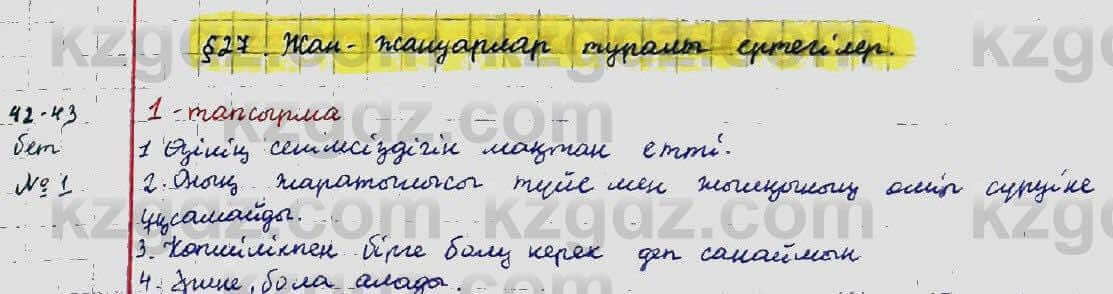 §27. Жан-жануарлар туралы ертегілер.
42-43 1-тапсырма
бет 1 Өзінің сенімсіздігін мақтан етті.
№ 1 2. Оның жаратылысы түйе мен жылқының өмір сүруіне
ұқсамайды.
3. Көпшілікпен бірге болу керек деп санаймын
4. Әрине, бола алады.
kzgdz.com